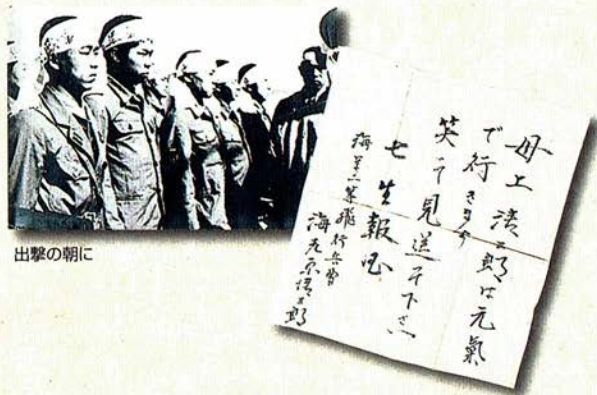 出撃の朝に
母上清三郎は元氣
で行きます
笑って見送って下さい
七生報國
海軍二等飛行兵曹